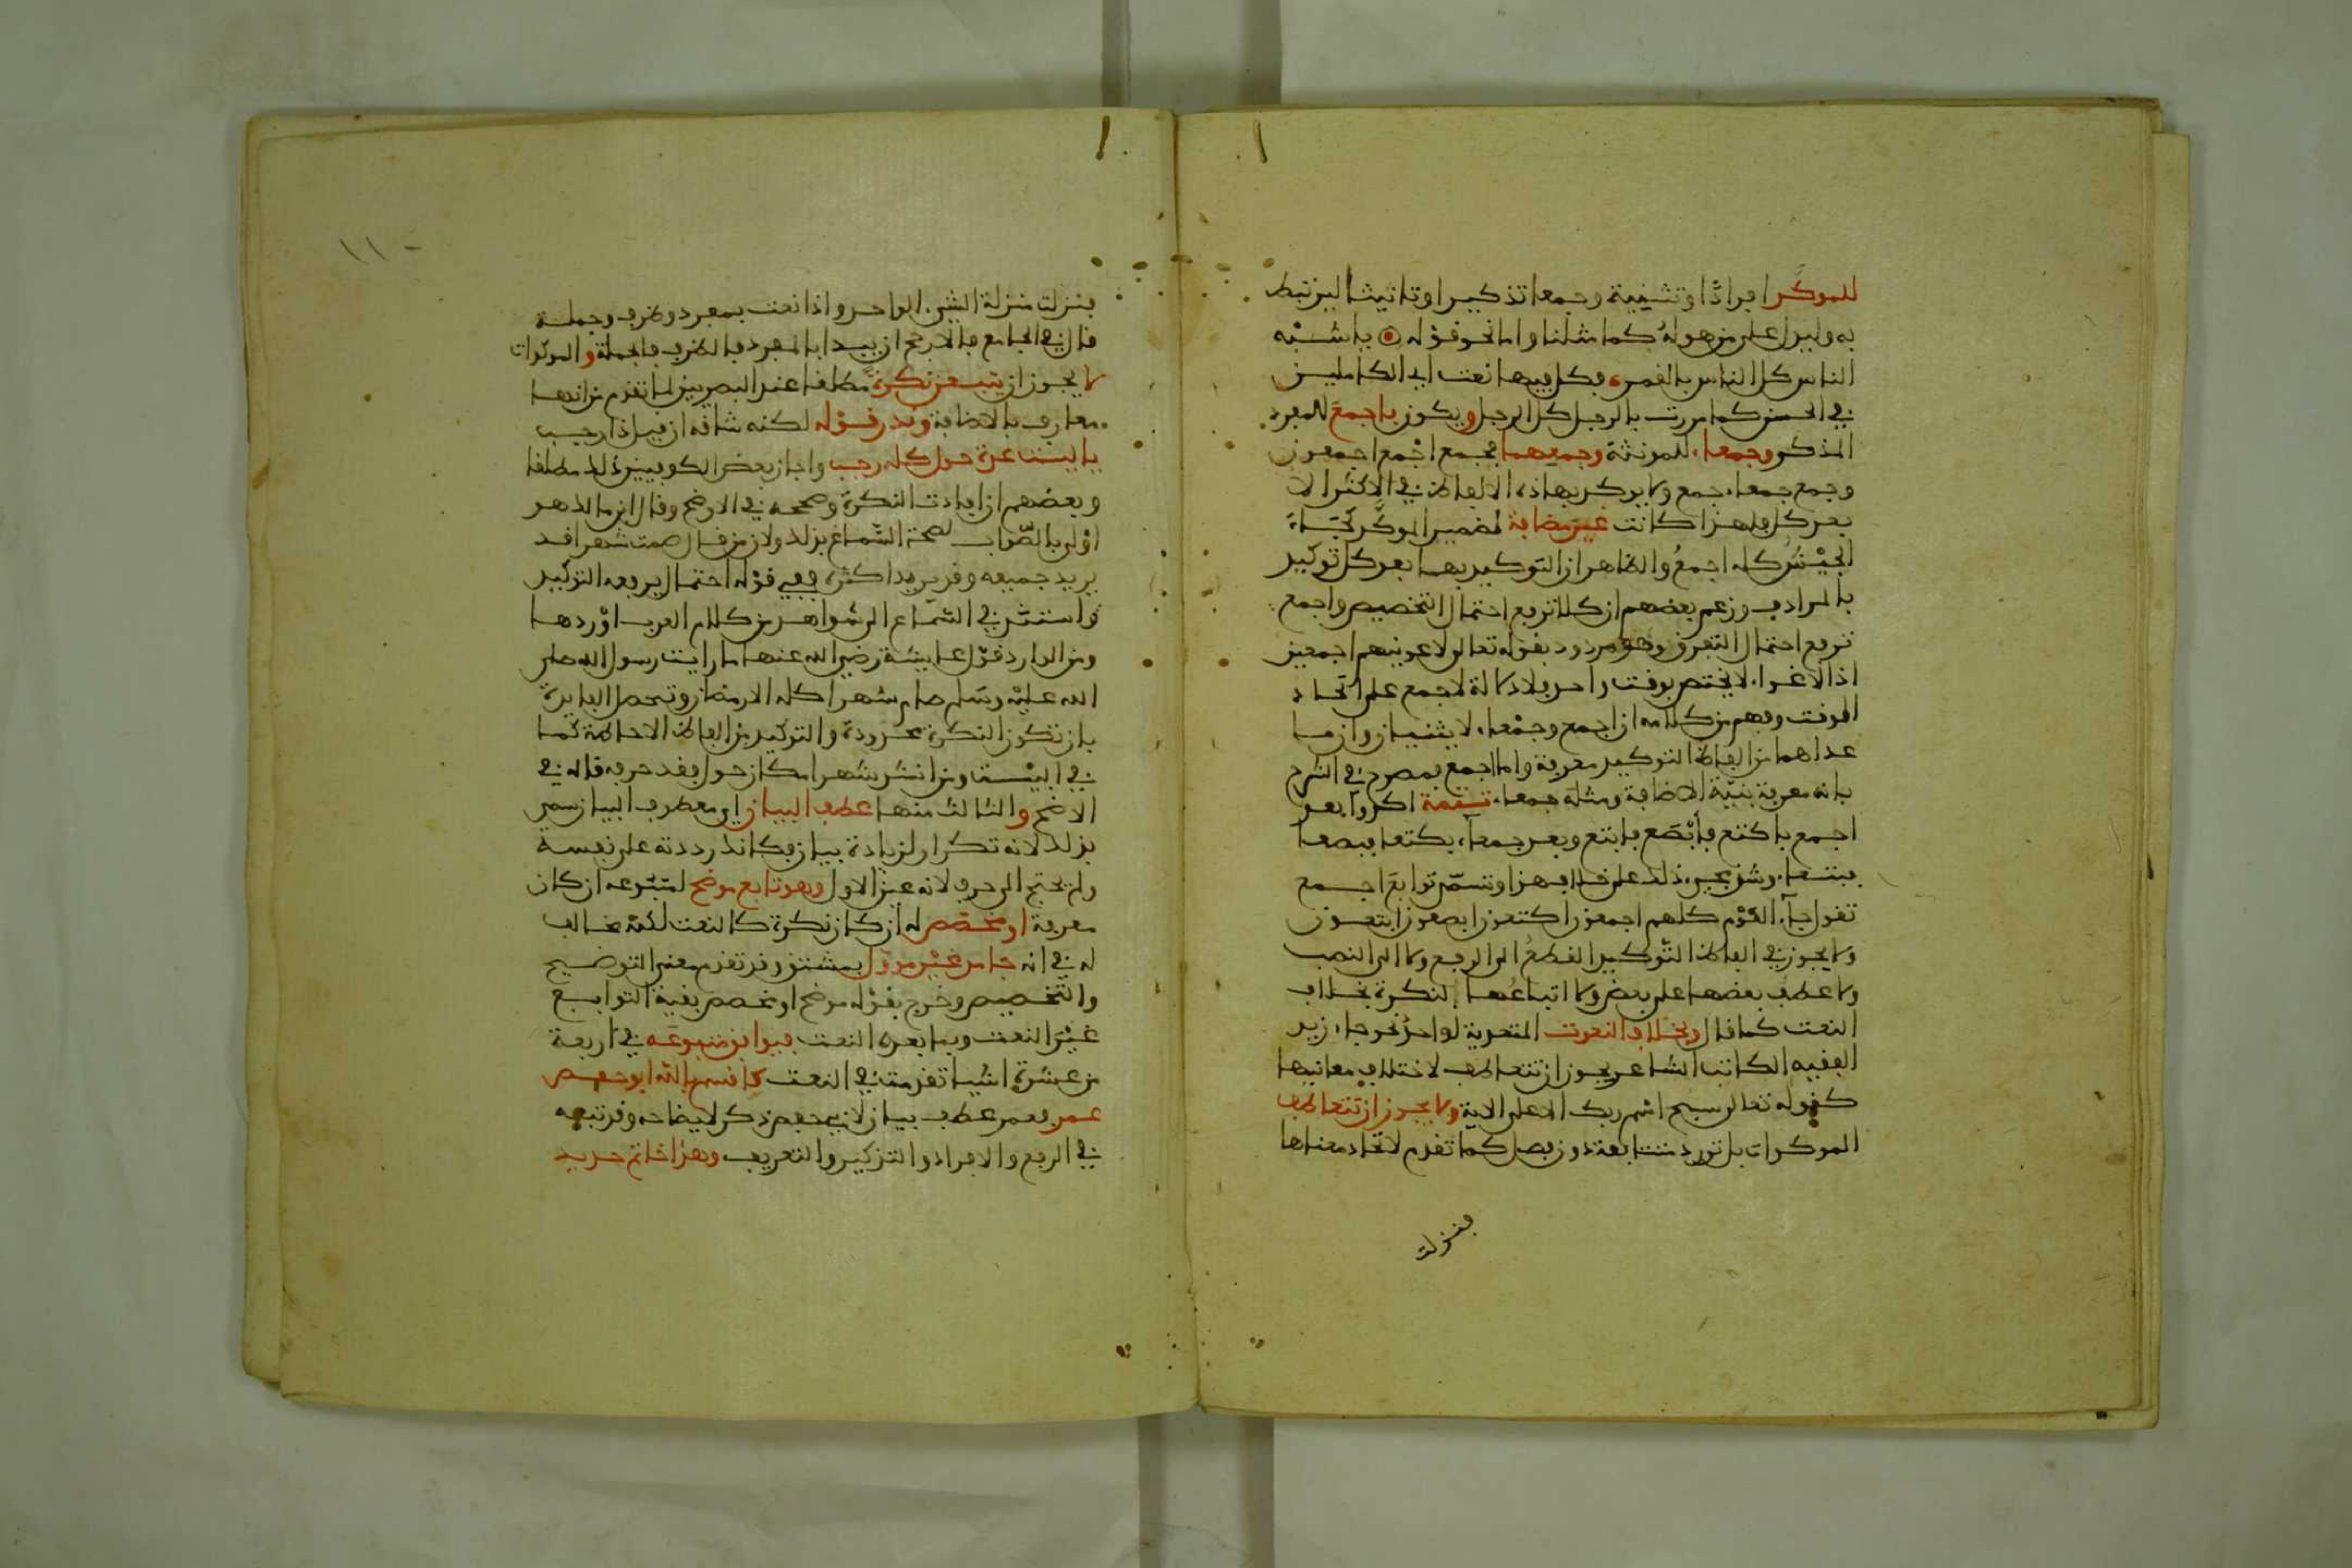 للموكَّد افرادًا وتثنية وجمعا تذكيرا وتانيثا ليرتبط
به وليدل على من هو له كما مثلنا واما نحو قوله يا اشبه
الناس كل الناس بالقمر، فكل فيها نعت اي الكاملين
في الحسن كما مررت بالرجل كل الرجل ويكون باجمع للمفرد
المذكر وجمعاء للمونثة وجميعهما فجمع اجْمع اجمعون
وجمع جمعاء جمع ولا يوكد بهاذه الالفاظ في الاكثر الا
بعد كل فلهذا كانت غير مضافة لضمير الموكَّد كجَاءَ
الجيْشُ كله اجمعُ والظاهر ان التوكيد بها بعد كل توكيد
بالمرادف وزعم بعضهم ان كلا ترفع احتمال التخصيص واجمع
ترفع احتمال التفرق وهو مردود بقوله تعالى لاغوينهم اجمعين
اذ الاغواء لا يختص بوقت واحد فلا دلالة لاجمع على اتحاد
الوقت وفهم من كلامه ان اجمع وجمْعاء لا يثنيان وان ما
عداهما من الفاظ التوكيد معرفة واما اجمع فمصرح في الشرح
بانه معرفة بنيّة الاضافة ومثله جمعاء تتمة اكدوا بعد
اجمع باكتع فأبْصَع فابتع وبعد جمعآء بكتعا فبصعا
فبتعاء وشذ مجيء ذلك على خلاف هذا وتسمّى توابعَ اجمع
تقول جآء القوْم كلهم اجمعون اكتعون ابصعون ابتعون
ولا يجوز في الفاظ التّوكيد القطعُ الى الرفع ولا الى النصب
ولا عطف بعضها على بعض ولا اتباعُها لنكرة بخلاف
النعت كما قال وبخلاف النعوت المتعددة لواحدٍ نحو جاء زيد
الفقيه الكاتب الشاعر يجوز ان تتعاطف لاختلاف معانيها
كقوله تعالى سبح اسْم ربك الاعلى الاية ولا يجوز ان تتعاطف
الموكدات بل تورد متتابعة دون فصل كما تقدم لاتحاد معناها
بنزلت
١١٠
بنزلت منزلة الشيء الواحد واذا نعت بمفرد وظرف وجملة
قال في الجامع فالارجح ان يبدا بالمفرد فالظرف فالجملة والموكدات
لا يجوز ان يتبعن نكرةً مطلقا عند البصريين لما تقدم من انها
معارف بالاضافة وندر قوْله لكنه شاقه ان قيل ذا رجب
يا ليت عدة حول كله رجب واجاز بعض الكوفيين ذلك مطلقا
وبعضهم ان افادت النكرة وصححه في الاوضح وقال ابن مالك هو
اوْلى بالصّواب لصحة السّماع بذلك ولان من قال صمت شهرا قد
يريد جميعه وقد يريد اكثره ففي قوْله احتمال يرفعه التوكيد
واستند في السّماع الى شواهد من كلام العرب اوْردها
ومن الوارد قوْل عايشة رضي الله عنها ما رايت رسول الله صلى
الله عليْه وسَلم صام شهرا كله الا رمضان وتحصل الفايدة
بان تكون النكرة محدودة والتوكيد من الفاظ الاحاطة كما
في البيْت ومن انشد شهر مكان حول فقد حرفه قاله في
الاوضح والثالث منها عطف البيان اي معطوف البيان سمي
بذلك لانه تكرار لزيادة بيان فكانك رددته على نفسه
ولم يحتج الى حرف لانه عين الاول وهو تابع موضح لمتبوعه ان كان
معرفة او مخصّص له ان كان نكرة كالنعت لكنّه مخالف
له في انه جامد غيْر موَوّل بمشتق وقد تقدم معنى التوضيح
والتخصيص وخرج بقوْله موضح او مخصص بقية التوابع
غيْرَ النعت وبما بعده النعت فيوافق متبوعه في اربعة
من عشرة اشيا تقدمت في النعت كاقسم بالله ابو حفص
عمر فعمر عطف بيان لابي حفص ذكر لايضاحه وقد تبعه
في الرفع والافراد والتذكير والتعريف وهذا خاتم حديد